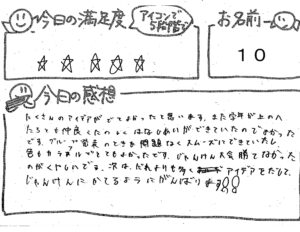 今日の満足度
アイコンで
5段階で
☆☆☆☆☆
お名前
10
今日の感想
たくさんのアイデアがでてよかったと思います。また学年が上の人
たちとも仲良くたのしくはなしあいができていたのでよかった
です。グループ発表のときも問題なくスムーズにできていたし
色もカラフルでとてもよかったです。じゃんけん大会勝てなかった
のがくやしいです。次は、だれよりも多くアイデアをだして、
じゃんけんにかてるようにがんばります!!